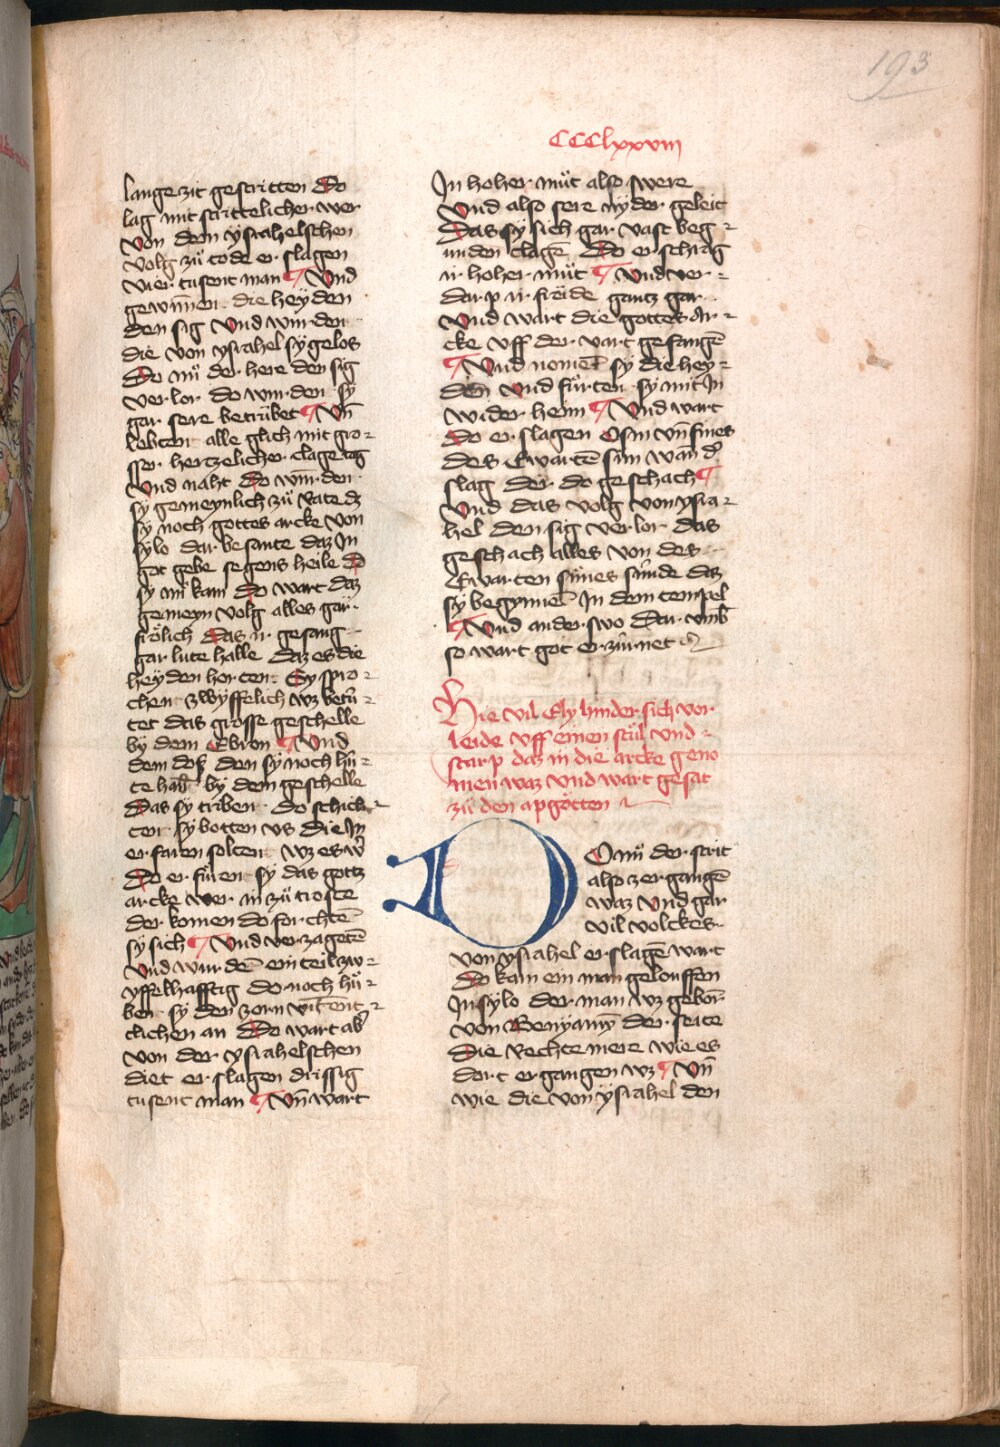 193
CCClxxviii
lange zit gestritten Do
lag mit strittelicher wer
von dem ysrahelschen
volg zuͦ tode er slagen
vier tusent man ¶ Vnd
gewinnen die heyden
den sig Vnd wurden
die von ysrahel sygelos
Do nuͦ der here den sig
ver lor do wurden sy
gar sere betruͤbet ¶ Vn̄
lebten alle glich mit gro⸗
sser hertzelicher clage tag
Vnd naht Do wurden
sy gemeynlich zuͦ Rate dz
sy noch gottes arcke von
sylo dar besante daz In
got gebe segens heile do
sy in kam Do wart daz
gemeyn volg alles gar
froͤlich Das ir gesang
gar lute halle daz es die
heyden horten Sy spro⸗
chen zwyffelich wz betuͤ⸗
tet das grosse geschelle
by dem Ebron ¶ Vnd
dem doß den sy noch huͤ⸗
te hab by dem geschelle
Das sy triben do schick⸗
ten sy botten vs die In
er faren solten wz es w̄
Do er fuͤren sy das gottz
arcke wer in zuͦ troste
der komen do forchtē
sy sich ¶ Vnd verzagetē
Vnd wurdē ein teil zw⸗
yffelhafftig do noch huͦ⸗
ben sy den zorn vīt ent⸗
clichen an Do wart ab
von der ysrahelschen
diet er slagen drissig
tusent man ¶ Vn̄ wart
In hoher muͦt also swere
Vnd also sere nyder geleit
Das sy sich gar vast beg⸗
unden clagē Do er schrag
ir hoher muͦt ¶ Vnd ver⸗
darp ir froͤide gantz gar
Vnd wart die gottes ar⸗
cke vff der vart gefangē
¶ Vnd nomēt sy die hey⸗
den Vnd fuͤrten sy mit In
wider heim ¶ Vnd wart
Do er slagen Osni vn̄ fines
des Ewartē sun wan d
slag der do geschach ¶
Vnd das volg von ysra⸗
hel den sig ver lor das
geschach alles von des
Ewarten sunes suͤnde das
sy begynnēt In dem tempel
¶ Vnd anderswo Dar vmb
so wart got erzuͤrnet
Hie vil Ely hinder sich vor
leide vff einen stuͦl Vnd
starp daz in die arcke geno
men waz Vnd wart gesat
zuͦ den apgoͤtten
DO nuͦ der strit
also zergangē
waz Vnd gar
vil volckes
von ysrahel er slagē wart
Do kam ein man gelouffen
In sylo der man wz geborn
von Benyamyn der seite
Die Rechte mere wie es
dort ergangen wz ¶ Vn̄
wie die von ysrahel den